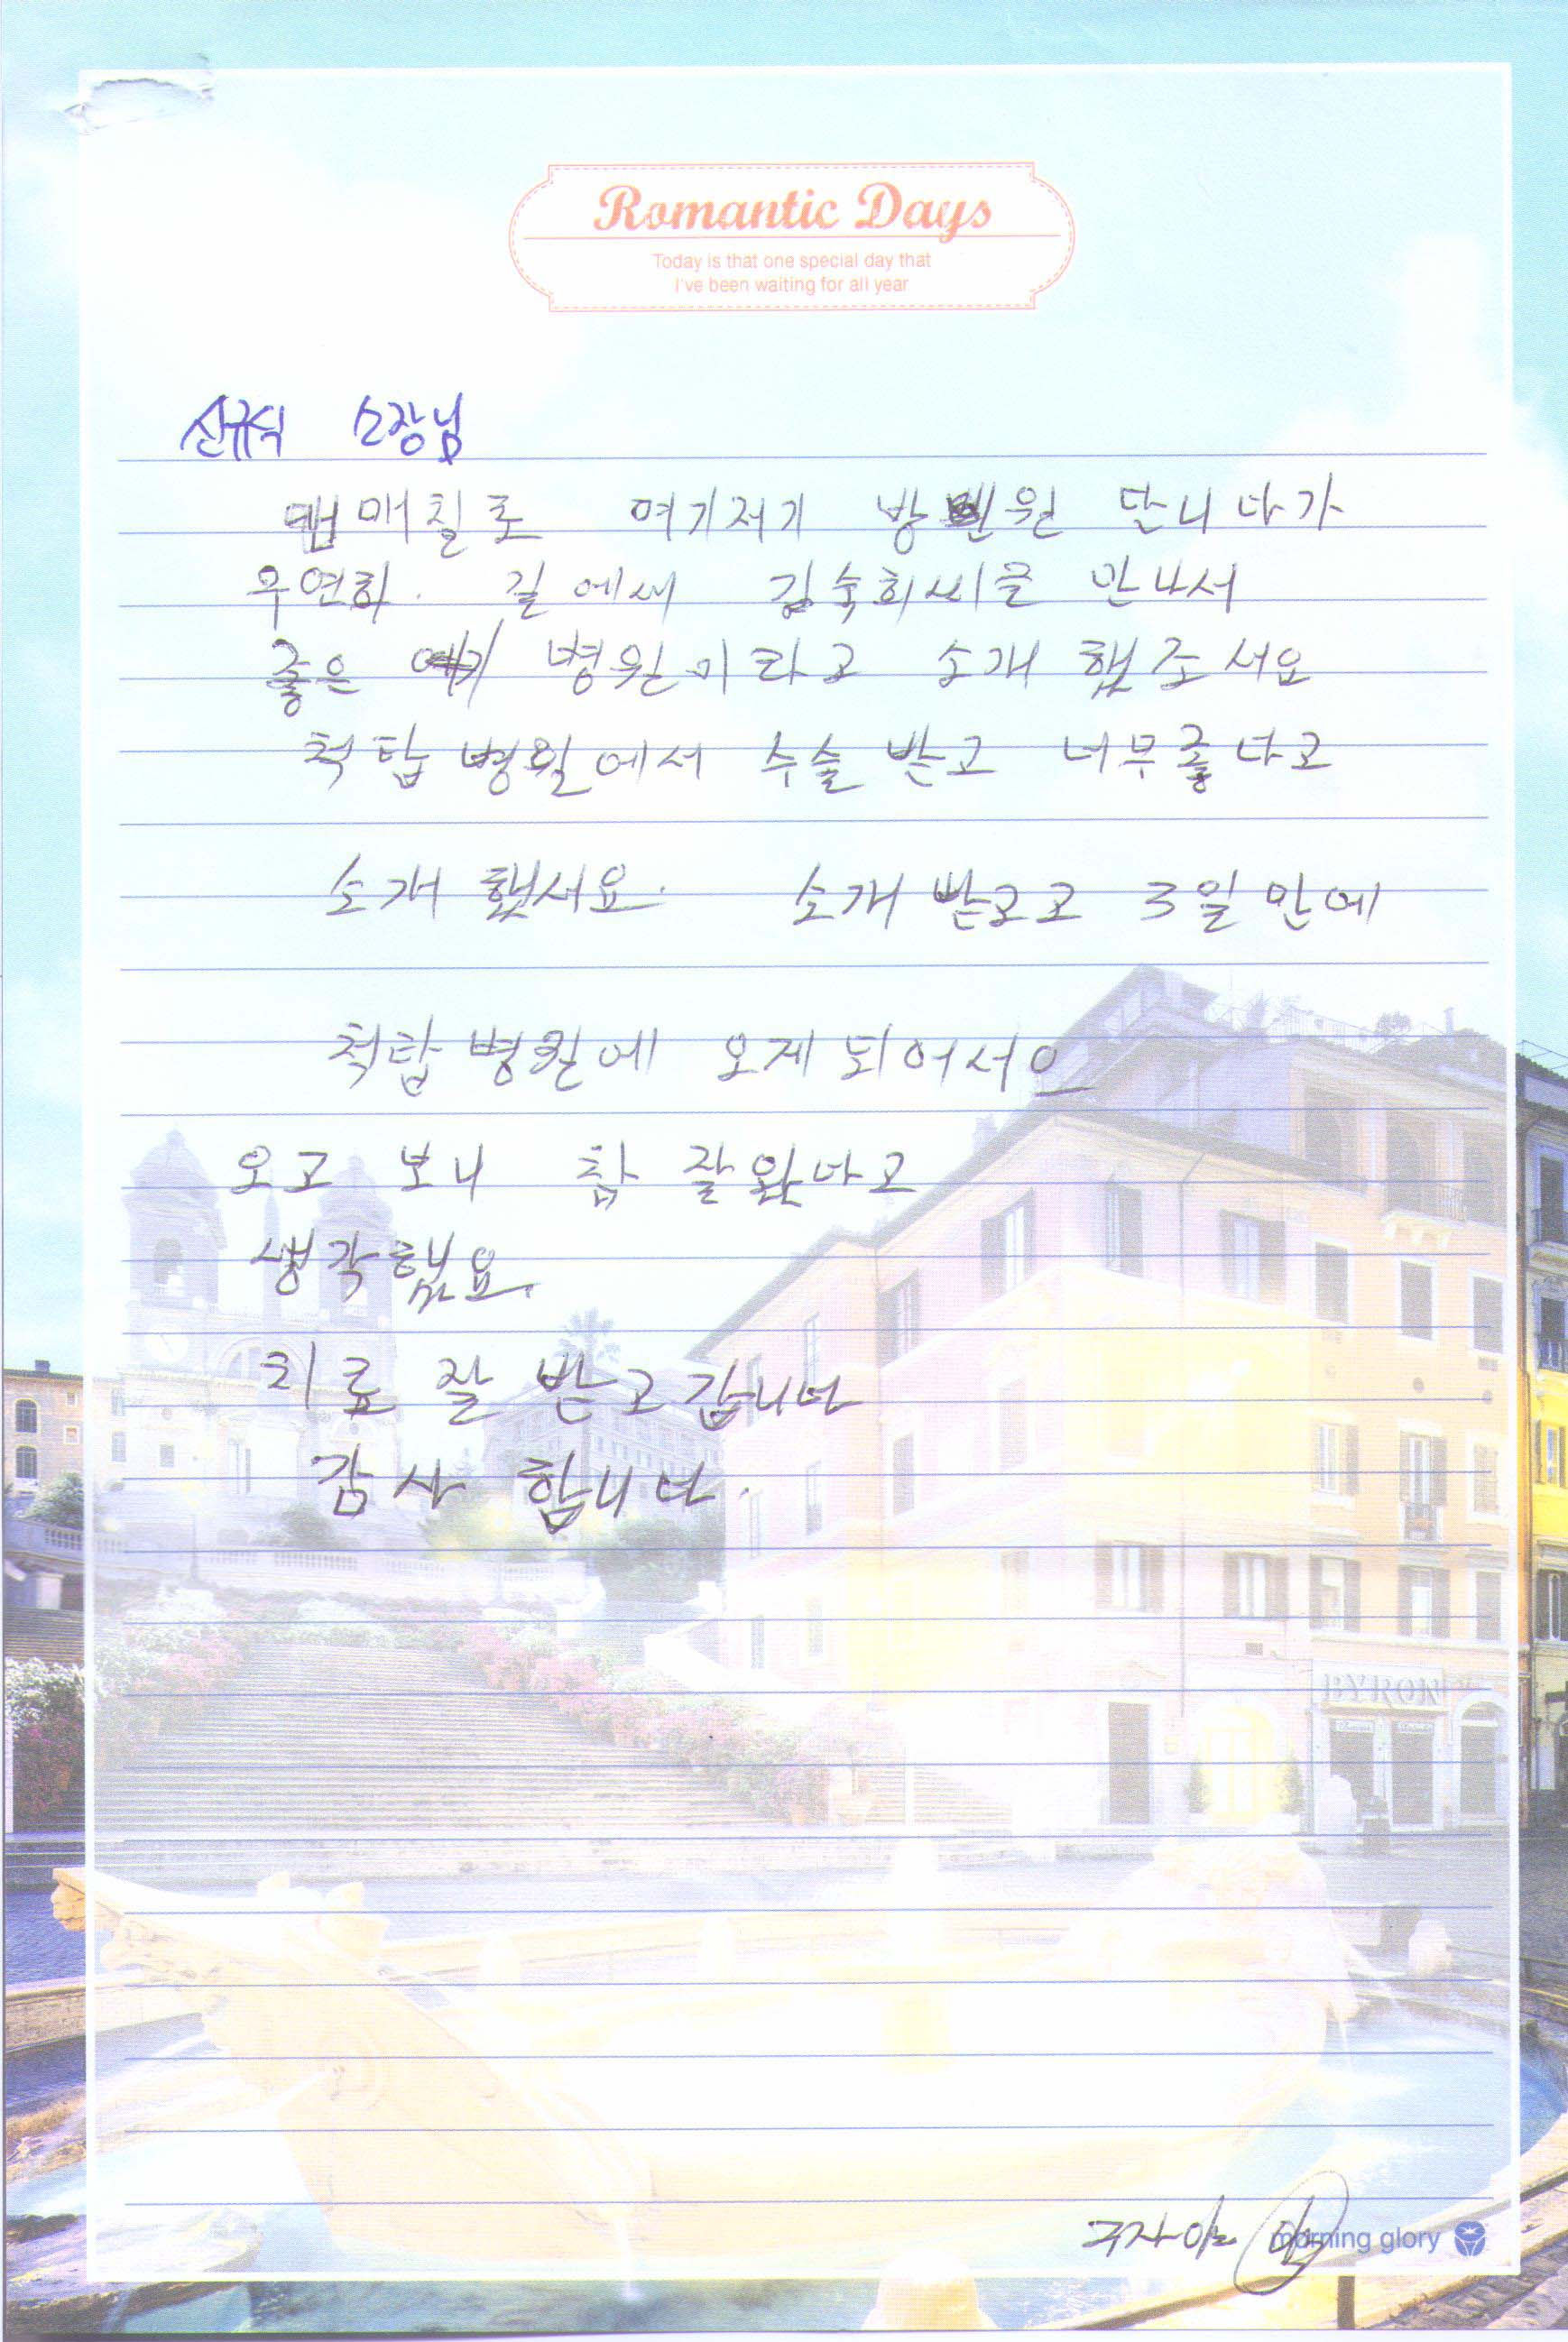 Romantic Days
Today is that one special day that
I've been waiting for all year
신규식 소장님
맵매칠로 여기저기 방원 단니다가
우연히. 길에새 김숙희씨를 만나서
좋은 병원이라고 소개 했조서요
척탑 병원에서 수술 받고 너무좋다고
소개 했서요. 소개 받고고 3일만에
척탑 병원에 오게 되어서요
오고 보니 참 잘왔다고
생각했요.
치료 잘 받고 갑니다
감사 합니다.
BYRON
morning glory